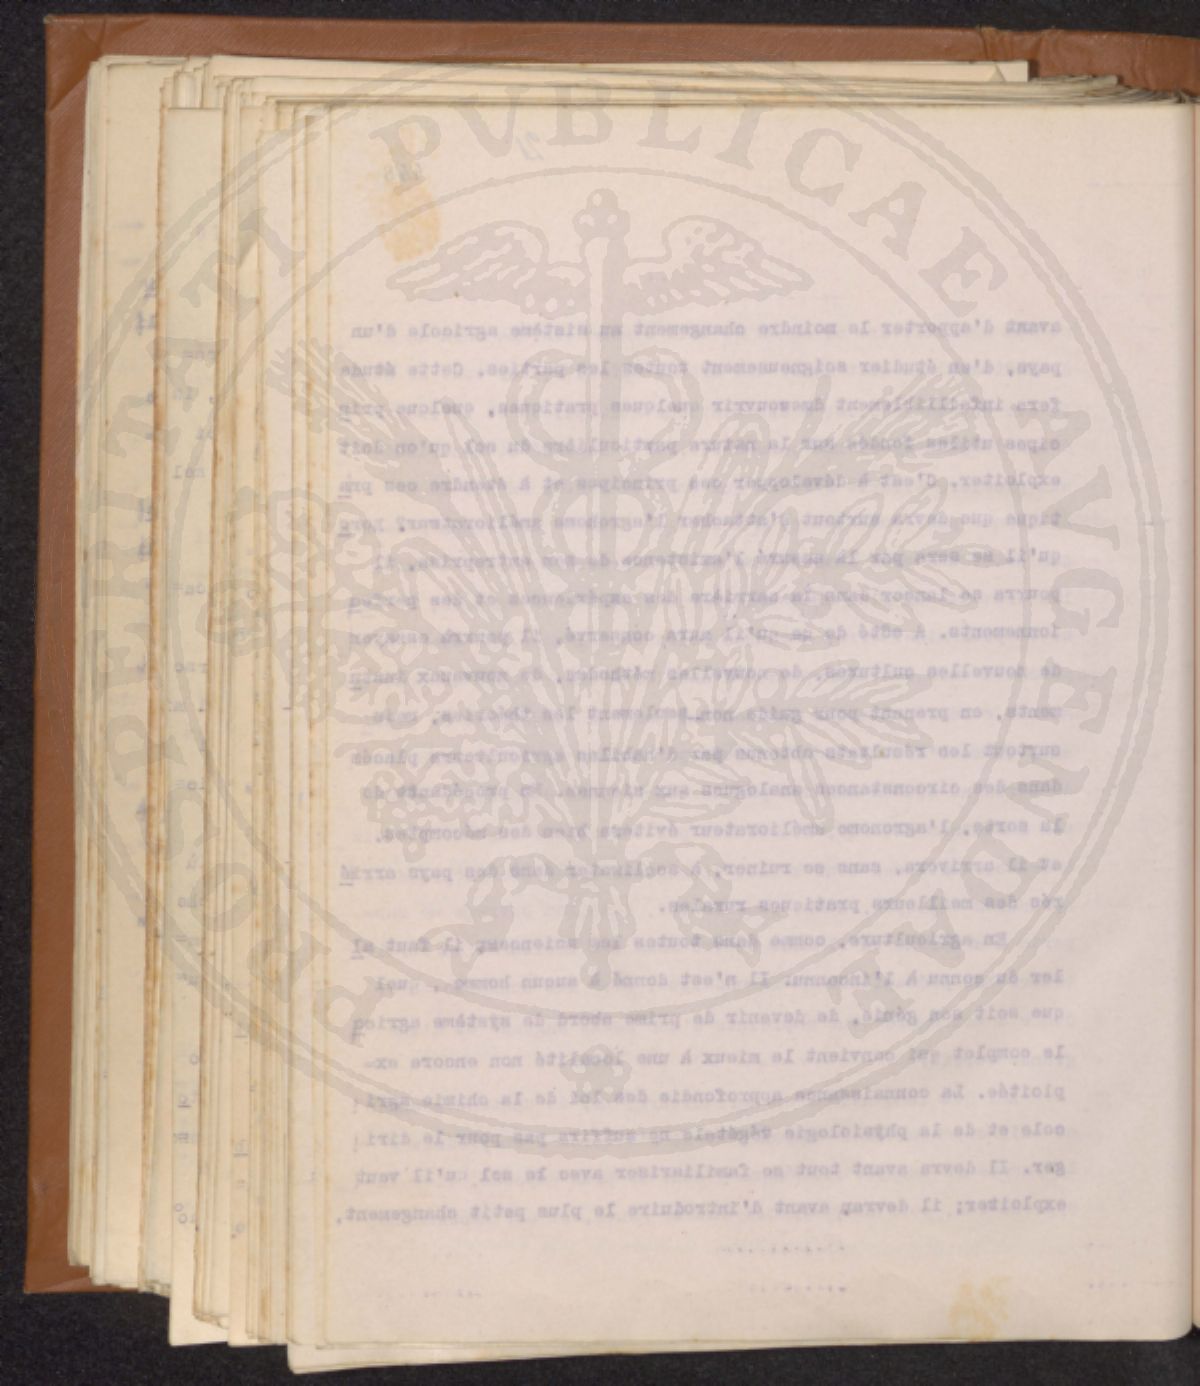 PROSPERITATI PUBLICAE AUGENDAE
avant d'apporter le moindre changement au sistème agricole d'un
pays, d'en étudier soigneusement toutes les parties. Cette étude
fera infailliblement découvrir quelques pratiques, quelque prin
cipes utiles fondés sur la nature particulière du sol qu'on doit
exploiter. C'est à développer ces principes et à étendre ces pra
tique que devra surtout s'attacher l'agronome améliorateur, lors
qu'il se sera par là assuré l'existence de son entreprise, il
pourra se lancer dans la carrière des expériences et des perfec
ionnements. A côté de ce qu'il aura conservé, il pourra essayer
de nouvelles cultures, de nouvelles méthodes, de nouveaux instu
ments, en prenent pour guide non seulement les théories, mais
surtout les résultats obtenus par d'habiles agriculteurs placés
dans des circonstances analogues aux siennes. En procédants de
la sorte, l'agronome améliorateur évitera bien des mécomptes,
et il arrivera, sans se ruiner, à acclimater dans des pays arrié
rés des meilleurs pratiques rurales.
En agriculture, comme dans toutes les sciences, il faut al
ler du connu à l'inconnu. Il n'est donné à aucun homme, quel
que soit son génie, de devenir de prime abord de système agrico
le complet qui convient le mieux à une localité non encore ex-
ploitée. La connaissance approfondie des loi de la chimie agri
cole et de la physiologie végétale ne suffira pas pour le diri
ger. Il devra avant tout se familiariser avec le sol qu'il veut
exploiter; il devra, avant d'introduire le plus petit changement,